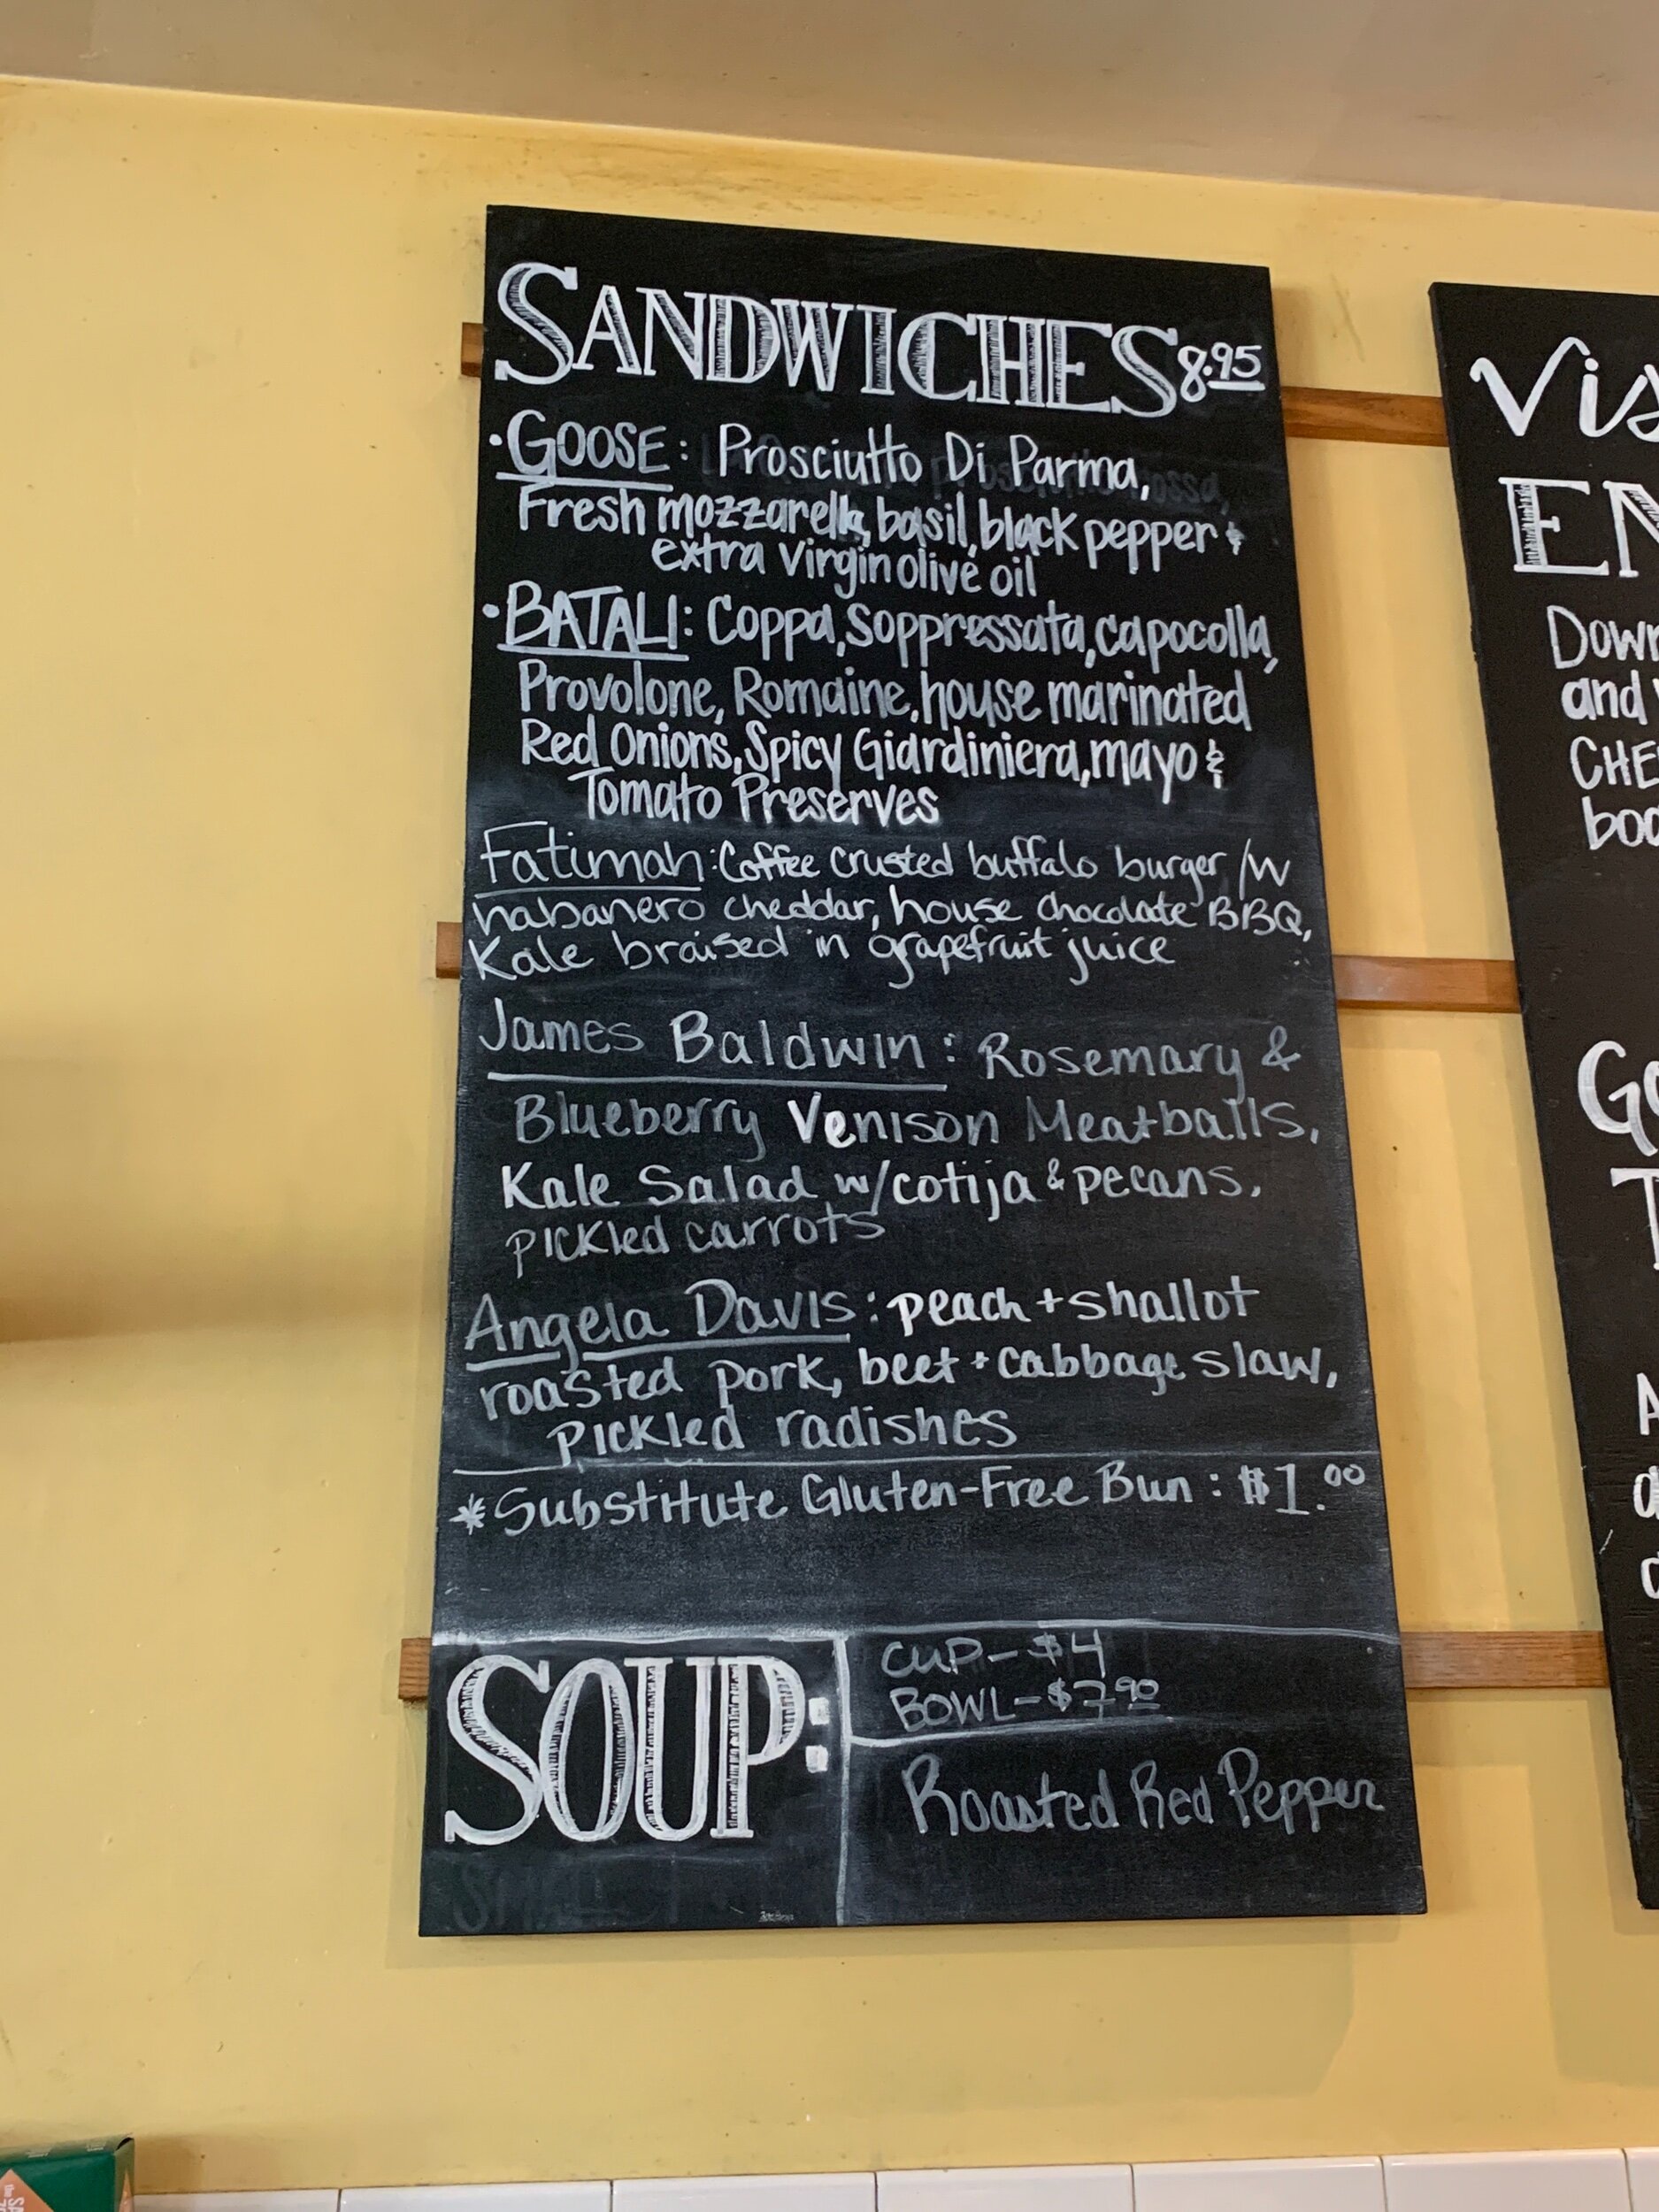 SANDWICHES 8.95
• GOOSE: Prosciutto Di Parma,
Fresh mozzarella, basil, black pepper &
extra virgin olive oil
• BATALI: Coppa, Soppressata, capocolla,
Provolone, Romaine, house marinated
Red Onions, Spicy Giardiniera, mayo &
Tomato Preserves
Fatimah: Coffee crusted buffalo burger /w
habanero cheddar, house chocolate BBQ,
Kale braised in grapefruit juice
James Baldwin: Rosemary &
Blueberry Venison Meatballs,
Kale Salad w/cotija & pecans,
pickled carrots
Angela Davis: peach + shallot
roasted pork, beet + cabbage slaw,
Pickled radishes
*Substitute Gluten-Free Bun: $1.00
SOUP:
CUP - $4
BOWL - $7.90
Roasted Red Pepper
Vis
EN
Down
and
CHE
boo
Go
T
A